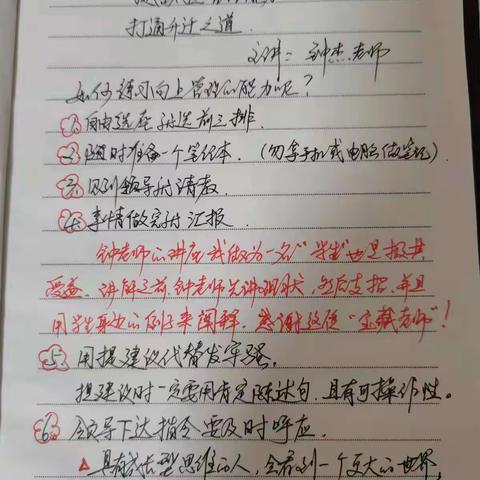 打通升计之道
主讲：钟杰老师
如何练习向上管理的能力呢？
1. 自由选座时选前三排.
2. 随时准备一个笔记本.（勿拿手机或电脑做笔记）.
3. 见到领导时请教.
4. 事情做完时汇报.
钟老师的讲座我做为一名“学生”也是极其
受益. 讲解之前,钟老师先讲现状,然后支招.并且
用学生身边的例子来阐释. 感谢这位“宝藏老师”!
5. 用提建议代替发牢骚.
提建议时一定要用肯定陈述句.且有可操作性。
6. 领导下达指令要及时呼应.
△ 具有成长型思维的人,会看到一个更大的世界,